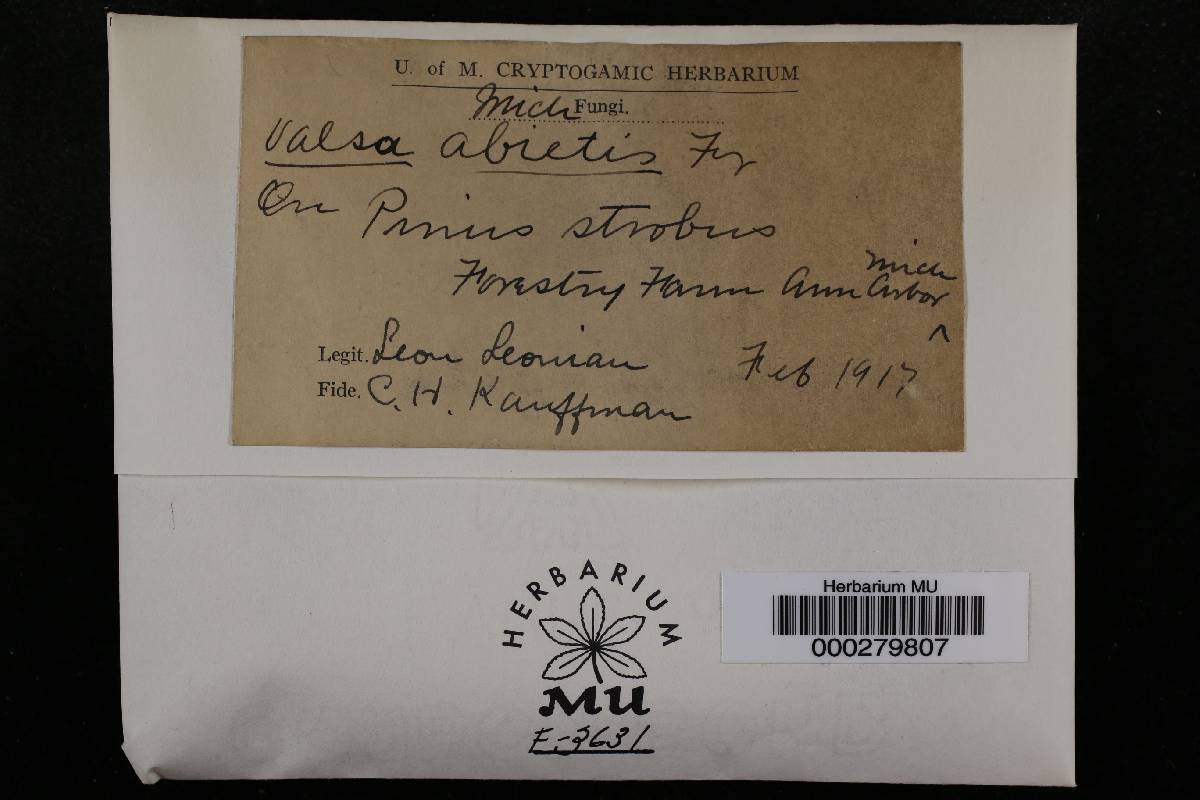 U. of M. CRYPTOGAMIC HERBARIUM
Mich Fungi.
Valsa abietis Fr
On Pinus strobus
Forestry Farm Ann Arbor Mich
Legit. Leon Leonian Feb 1917
Fide. C. H. Kauffman
HERBARIUM
MU
F-3631
Herbarium MU
000279807